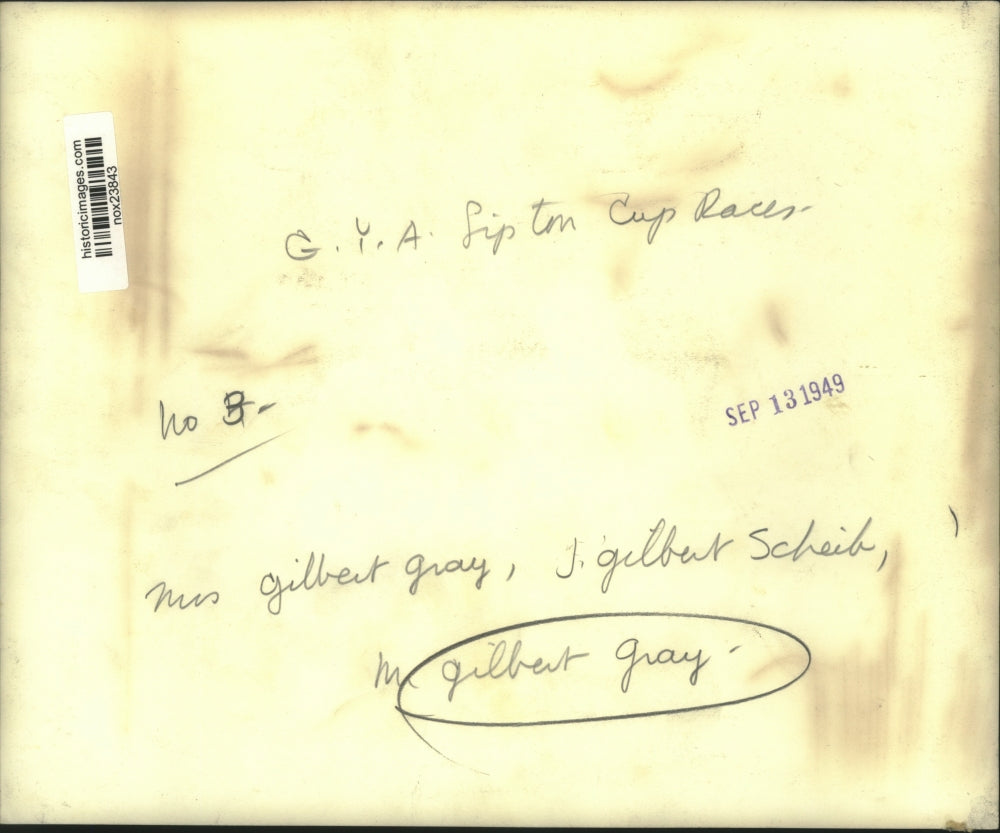 historicimages.com
nox23843
G.Y.A. Lipton Cup Races-
No 3.-
SEP 13 1949
Mrs Gilbert Gray, J. Gilbert Scheib,
Mr Gilbert Gray-